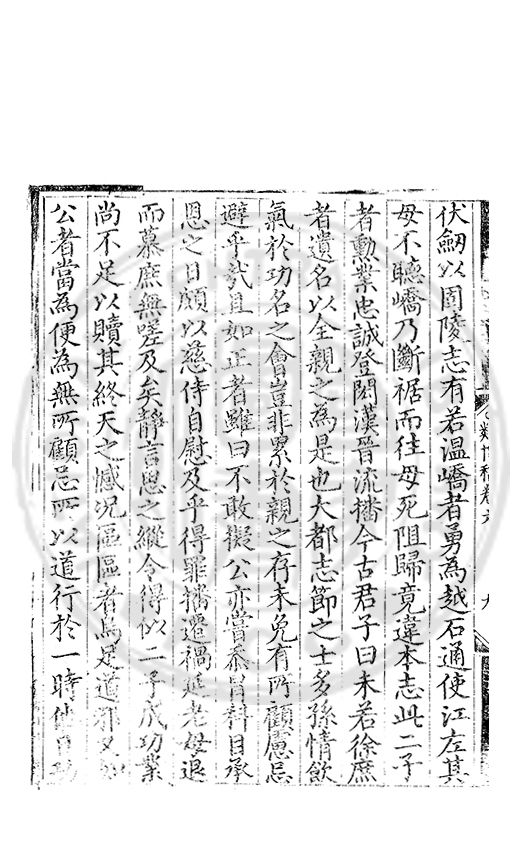 伏劒以固陵志有若温嶠者勇為越石通使江左其
母不聽嶠乃斷裾而往母死阻歸竟違本志此二子
者勳業忠誠登閎漢晉流播今古君子曰未若徐庶
者遺名以全親之為是也大都志節之士多孫情飲
氣於功名之會豈非累於親之存未免有所顧慮忌
避乎哉且如正者雖曰不敢擬公亦嘗忝冒科目承
恩之日頗以慈侍自慰及乎得罪播遷禍延老母退
而慕庶無嗟及矣靜言思之縱令得似二子成功業
尚不足以贖其終天之憾况區區者烏足道邪又
公者當為便為無所顧忌所以道行於一時使
類博稿卷六
九